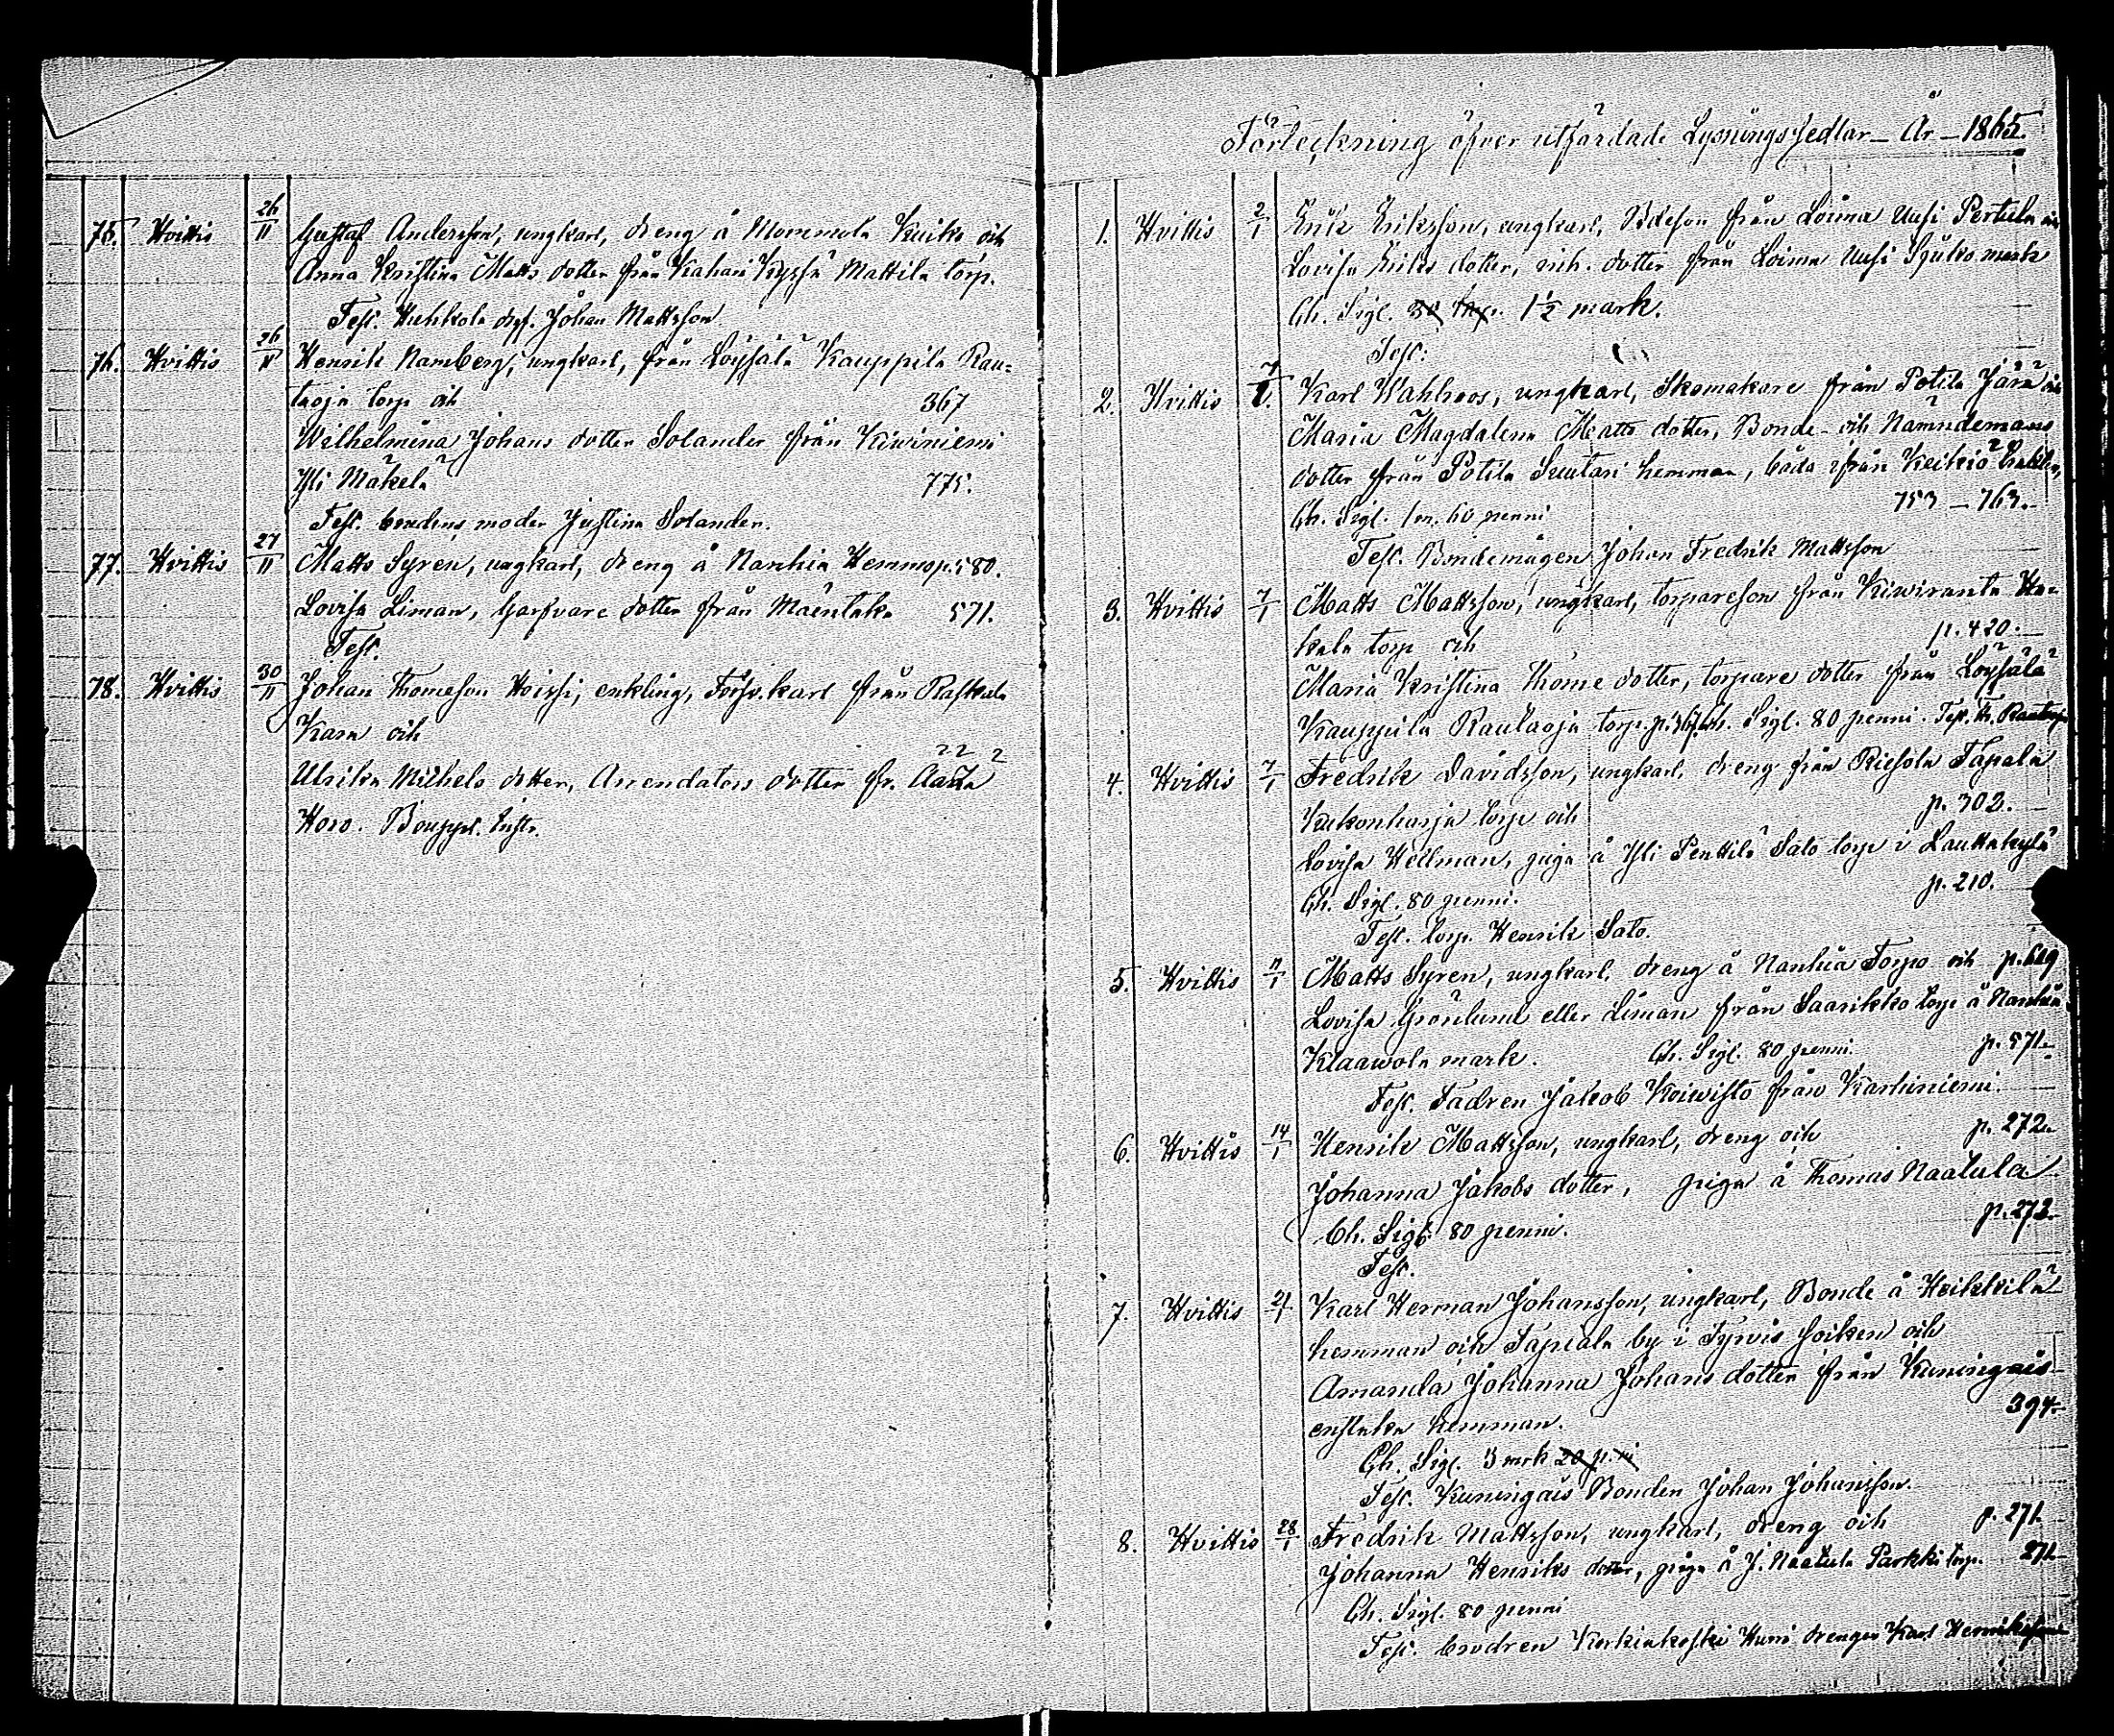 75. Hvittis 26/11 Gustaf Andersson, ungkarl, dreng å Mommola Kuiks och
Anna Kristina Matts dotter från Kahari Kyssä Mattila torp.
Test. Huhkola Johan Mattsson
76. Hvittis 26/11 Henrik Ramberg, ungkarl, från Löysälä Kauppila Rau=
taoja torp och 367
Wilhelmina Johans dotter Solander från Kiviniemi
Yli Mäkelä 775.
Test. brudens moder Justina Solander.
77. Hvittis 27/11 Matts Syren, ungkarl, dreng å Nanhia Hemmo p. 580.
Lovisa Liman, Garfvare dotter från 571.
Test.
78. Hvittis 30/11 Johan Thomeson Hoissi, enkling, Försv. karl från Raskala
Kara och
Ulrika Michels dotter, Arrendators dotter fr.
Horo. Bouppt. Instr.
Förteckning öfver utfärdade Lysningssedlar – År – 1865.
1. Hvittis 2/1 Erik Eriksson, ungkarl, Bdeson från Loima Uusi Pertula och
Lovisa Eriks dotter, inh. dotter från Loima Uusi mark
Ch. Sigl. 1 1/2 mark.
Test:
2. Hvittis 7/1. Karl Wahlroos, ungkarl, Skomakare från Potila Järä och
Maria Magdalena Matts dotter, Bonde- och Nämndemans
dotter från Potila Suutari hemman, båda ifrån Keikiö
Ch. Sigl. 1 m. 60 penni 753 – 763.
Test. Bondemågen Johan Fredrik Mattsson
3. Hvittis 7/1 Matts Mattsson, ungkarl, torpareson från Kiviranta Ha=
kala torp och p. 420.
Maria Kristina Thome dotter, torpare dotter från Löysälä
Kauppila Rautaoja torp. p. 367. Ch. Sigl. 80 penni. Test. Th. Rautaoja
4. Hvittis 7/1 Fredrik Davidsson, ungkarl, dreng från Riesola Tapala
Kukonharja torp och p. 302.
Lovisa Hellman, piga å Yli Penttilä Sato torp i Lauttakylä
Ch. Sigl. 80 penni. p. 210.
Test. torp. Henrik Sato.
5. Hvittis 11/1 Matts Syren, ungkarl, dreng å Nanhia Torpo och p. 619
Lovisa Grönlund eller Liman från Saarikko torp å Nanhia
Klaavola mark. Ch. Sigl. 80 penni. p. 571.
Test. Fadren Jakob Koivisto från Karhiniemi.
6. Hvittis 14/1 Henrik Mattsson, ungkarl, dreng och p. 272.
Johanna Jakobs dotter, piga å Thomas Naatula
Ch. Sigl. 80 penni. p. 273.
Test.
7. Hvittis 21/1 Karl Herman Johansson, ungkarl, Bonde å Heikkilä
hemman och Tapiala by i Tyrvis socken och
Amanda Johanna Johans dotter från Kuningais
enstaka hemman. 394.
Ch. Sigl. 3 mrk 20 p:ni
Test. Kuningais Bonden Johan Johansson.
8. Hvittis 28/1 Fredrik Mattsson, ungkarl, dreng och p. 271
Johanna Henriks dotter, piga å J. Naatula Parkki torp. 271
Ch. Sigl. 80 penni
Test. brodren Korkiakoski Hurri drengen Karl Henriksson